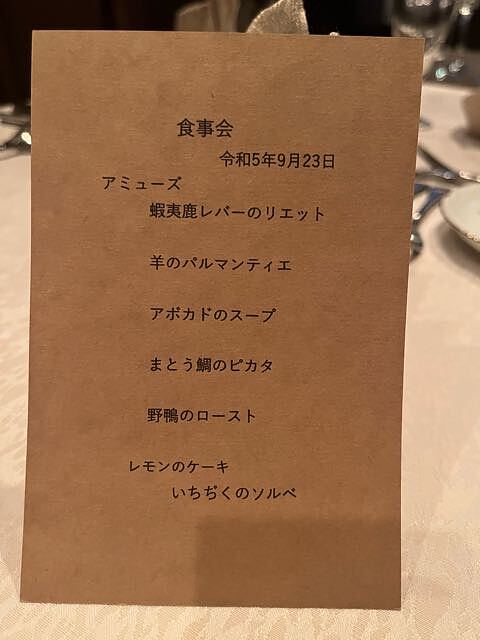 食事会
令和5年9月23日
アミューズ
蝦夷鹿レバーのリエット
羊のパルマンティエ
アボカドのスープ
まとう鯛のピカタ
野鴨のロースト
レモンのケーキ
いちぢくのソルベ